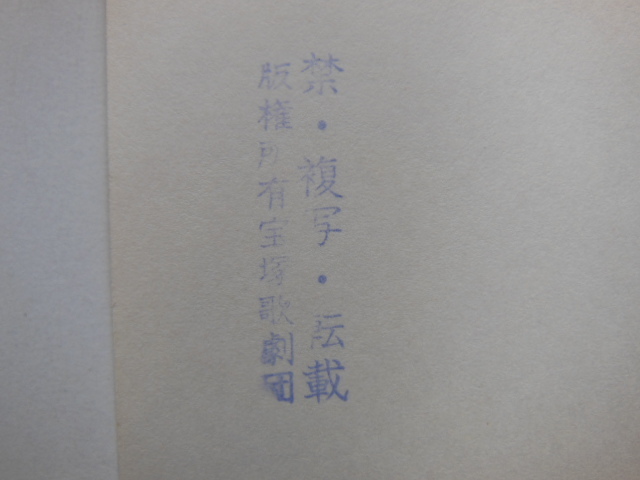 禁・複写・転載
版権所有宝塚歌劇団